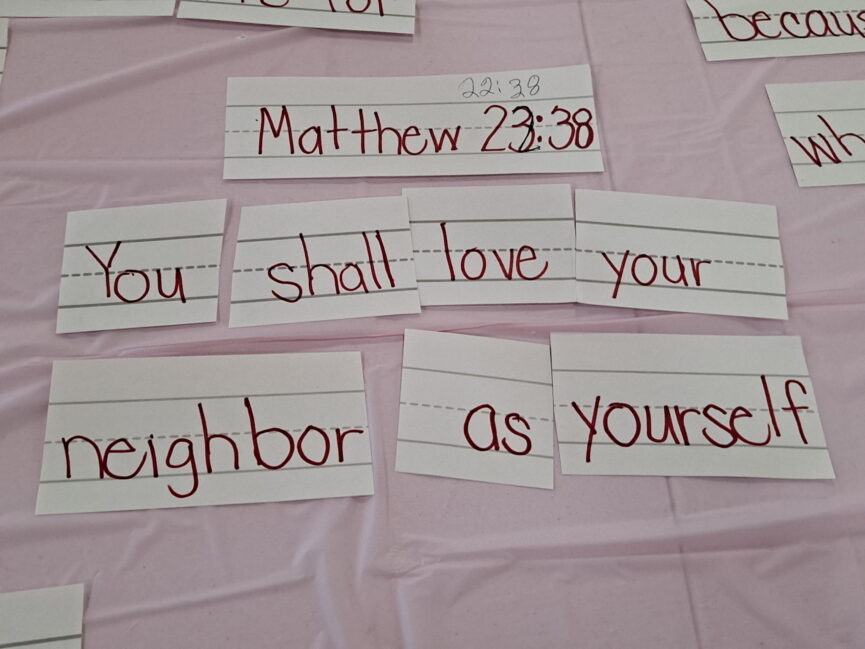 becau
wh
22:38
Matthew 23:38
You shall love your
neighbor as yourself